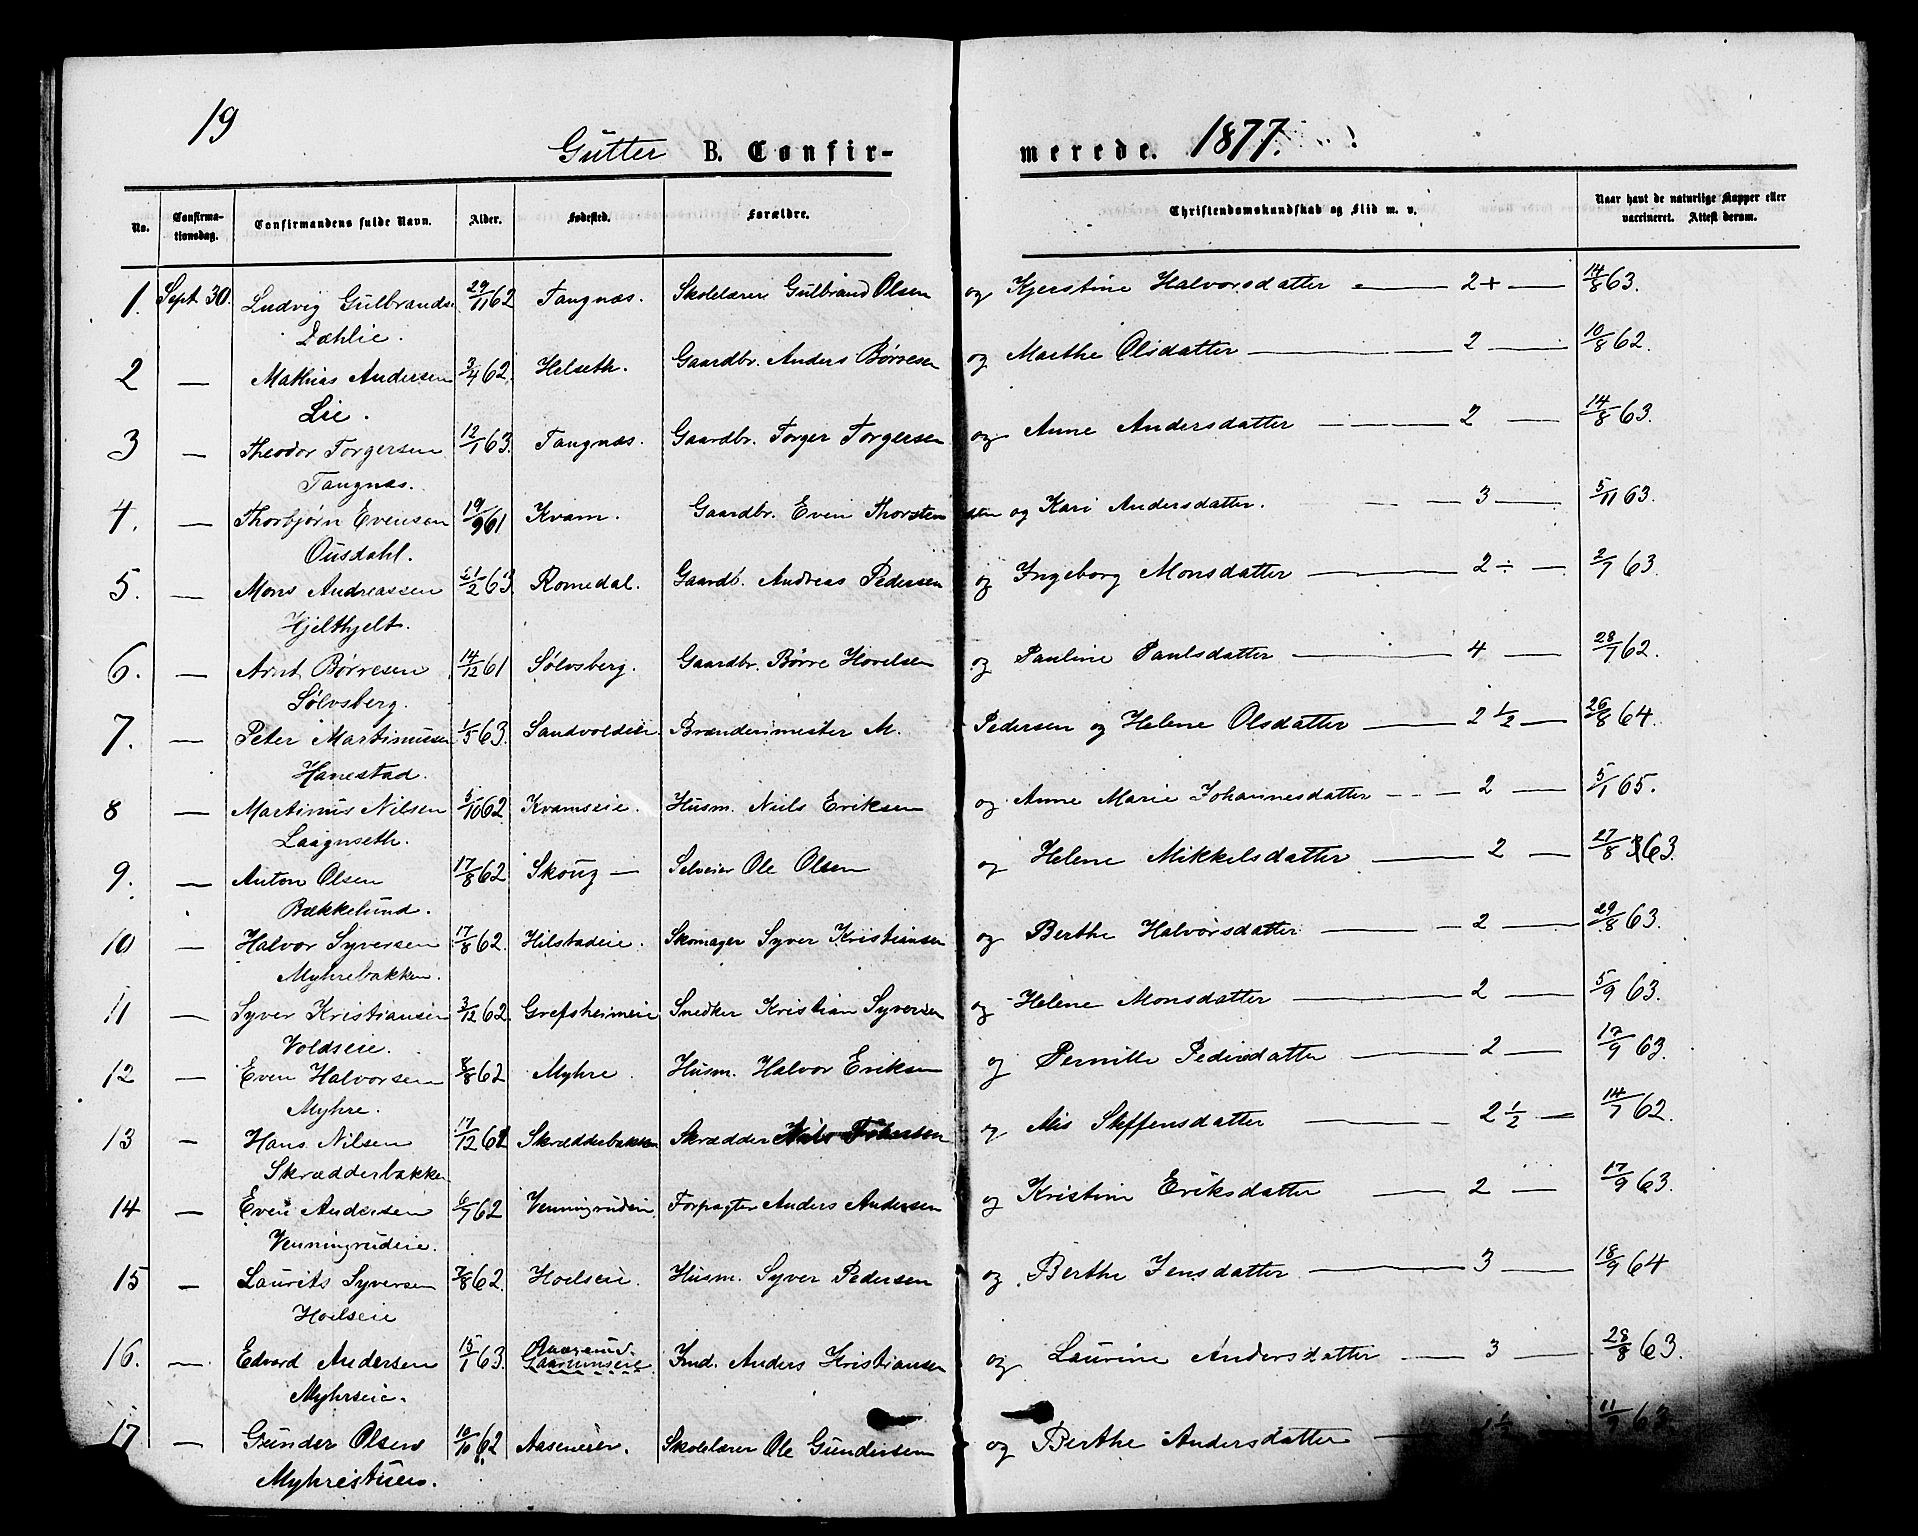 19
Gutter B. Confirmerede. 1877.
No. Confirmationsdag. Confirmandens fulde Navn. Alder. Fødested. Forældre. Christendomskundskab og Flid m. v. Naar havt de naturlige Kopper eller vaccineret. Attest derom.
1. Sept 30. Ludvig Gulbrands. 29/11 62 Tangnæs. Skolelærer Gulbrand Olsen og Kjerstine Halvorsdatter — 2+ — 14/8 63.
Dæhlie.
2 — Mathias Andersen 3/4 62. Helseth. Gaardbr. Anders Børresen og Marthe Olsdatter — 2 — 10/8 62.
Lie.
3 — Theodor Torgersen 12/1 63. Tangnæs. Gaardbr. Torger Torgersen og Anne Andersdatter — 2 — 14/8 63.
Tangnæs.
4. — Thorbjørn Evensen 19/9 61 Kvam. Gaardbr. Even Thorstensen og Kari Andersdatter. — 3 — 5/11 63.
Ousdahl.
5. — Mons Andreassen 21/2 63. Romedal. Gaardb. Andreas Pedersen og Ingeborg Monsdatter — 2 ÷ — 2/7 63.
Hjelthjelt.
6. — Arnt Børresen 14/12 61 Sølvsberg. Gaardbr. Børre Hovelsen og Pauline Paulsdatter — 4 — 28/7 62.
Sølvsberg.
7. — Peter Martinussen 1/5 63. Sandvoldeie. Brænderimester M. Pedersen og Helene Olsdatter — 2 1/2 — 26/8 64.
Hanestad.
8 — Martinus Nilsen 5/10 62. Kvamseie. Husm. Niels Eriksen og Anne Marie Johannesdatter — 2 — 5/1 65.
Laagnseth.
9. — Anton Olsen 17/8 62 Skoug — Selveier Ole Olsen og Helene Mikkelsdatter — 2 — 27/8 63.
Bækkelund.
10 — Halvor Syversen 17/8 62. Hilstadeie. Skomager Syver Kristiansen og Berthe Halvorsdatter — 2 — 29/8 63.
Myhrebakken.
11 — Syver Kristiansen 3/12 62. Grefsheimeie Snedker Kristian Syversen og Helene Monsdatter — 2 — 5/9 63.
Voldseie.
12 — Even Halvorsen 8/8 62 Myhre. Husm. Halvor Eriksen og Pernille Pedersdatter — 2 — 17/9 63.
Myhre.
13 — Hans Nilsen 17/12 62 Skrædderbakken Skrædder Nils og Steffensdatter — 2 1/2 — 14/7 62.
Skrædderbakken
14 — Even Andersen 6/7 62 Venningrudeie. Forpagter Anders Andersen og Kristine Eriksdatter — 2 — 17/9 63.
Venningrudeie.
15 — Laurits Syversen 7/8 62. Hoelseie. Husm. Syver Pedersen og Berthe Jensdatter — 3 — 18/9 64
Hoelseie
16. — Edvard Andersen 15/1 63. Ind. Anders Kristiansen og Laurine Andersdatter — 3 — 28/8 63.
Myhrseie.
17 — Gunder Olsen 10/10 62 Aaseneier. Skolelærer Ole Gundersen og Berthe Andersdatter — 1 1/2 — 11/9 63.
Myhrestuen.